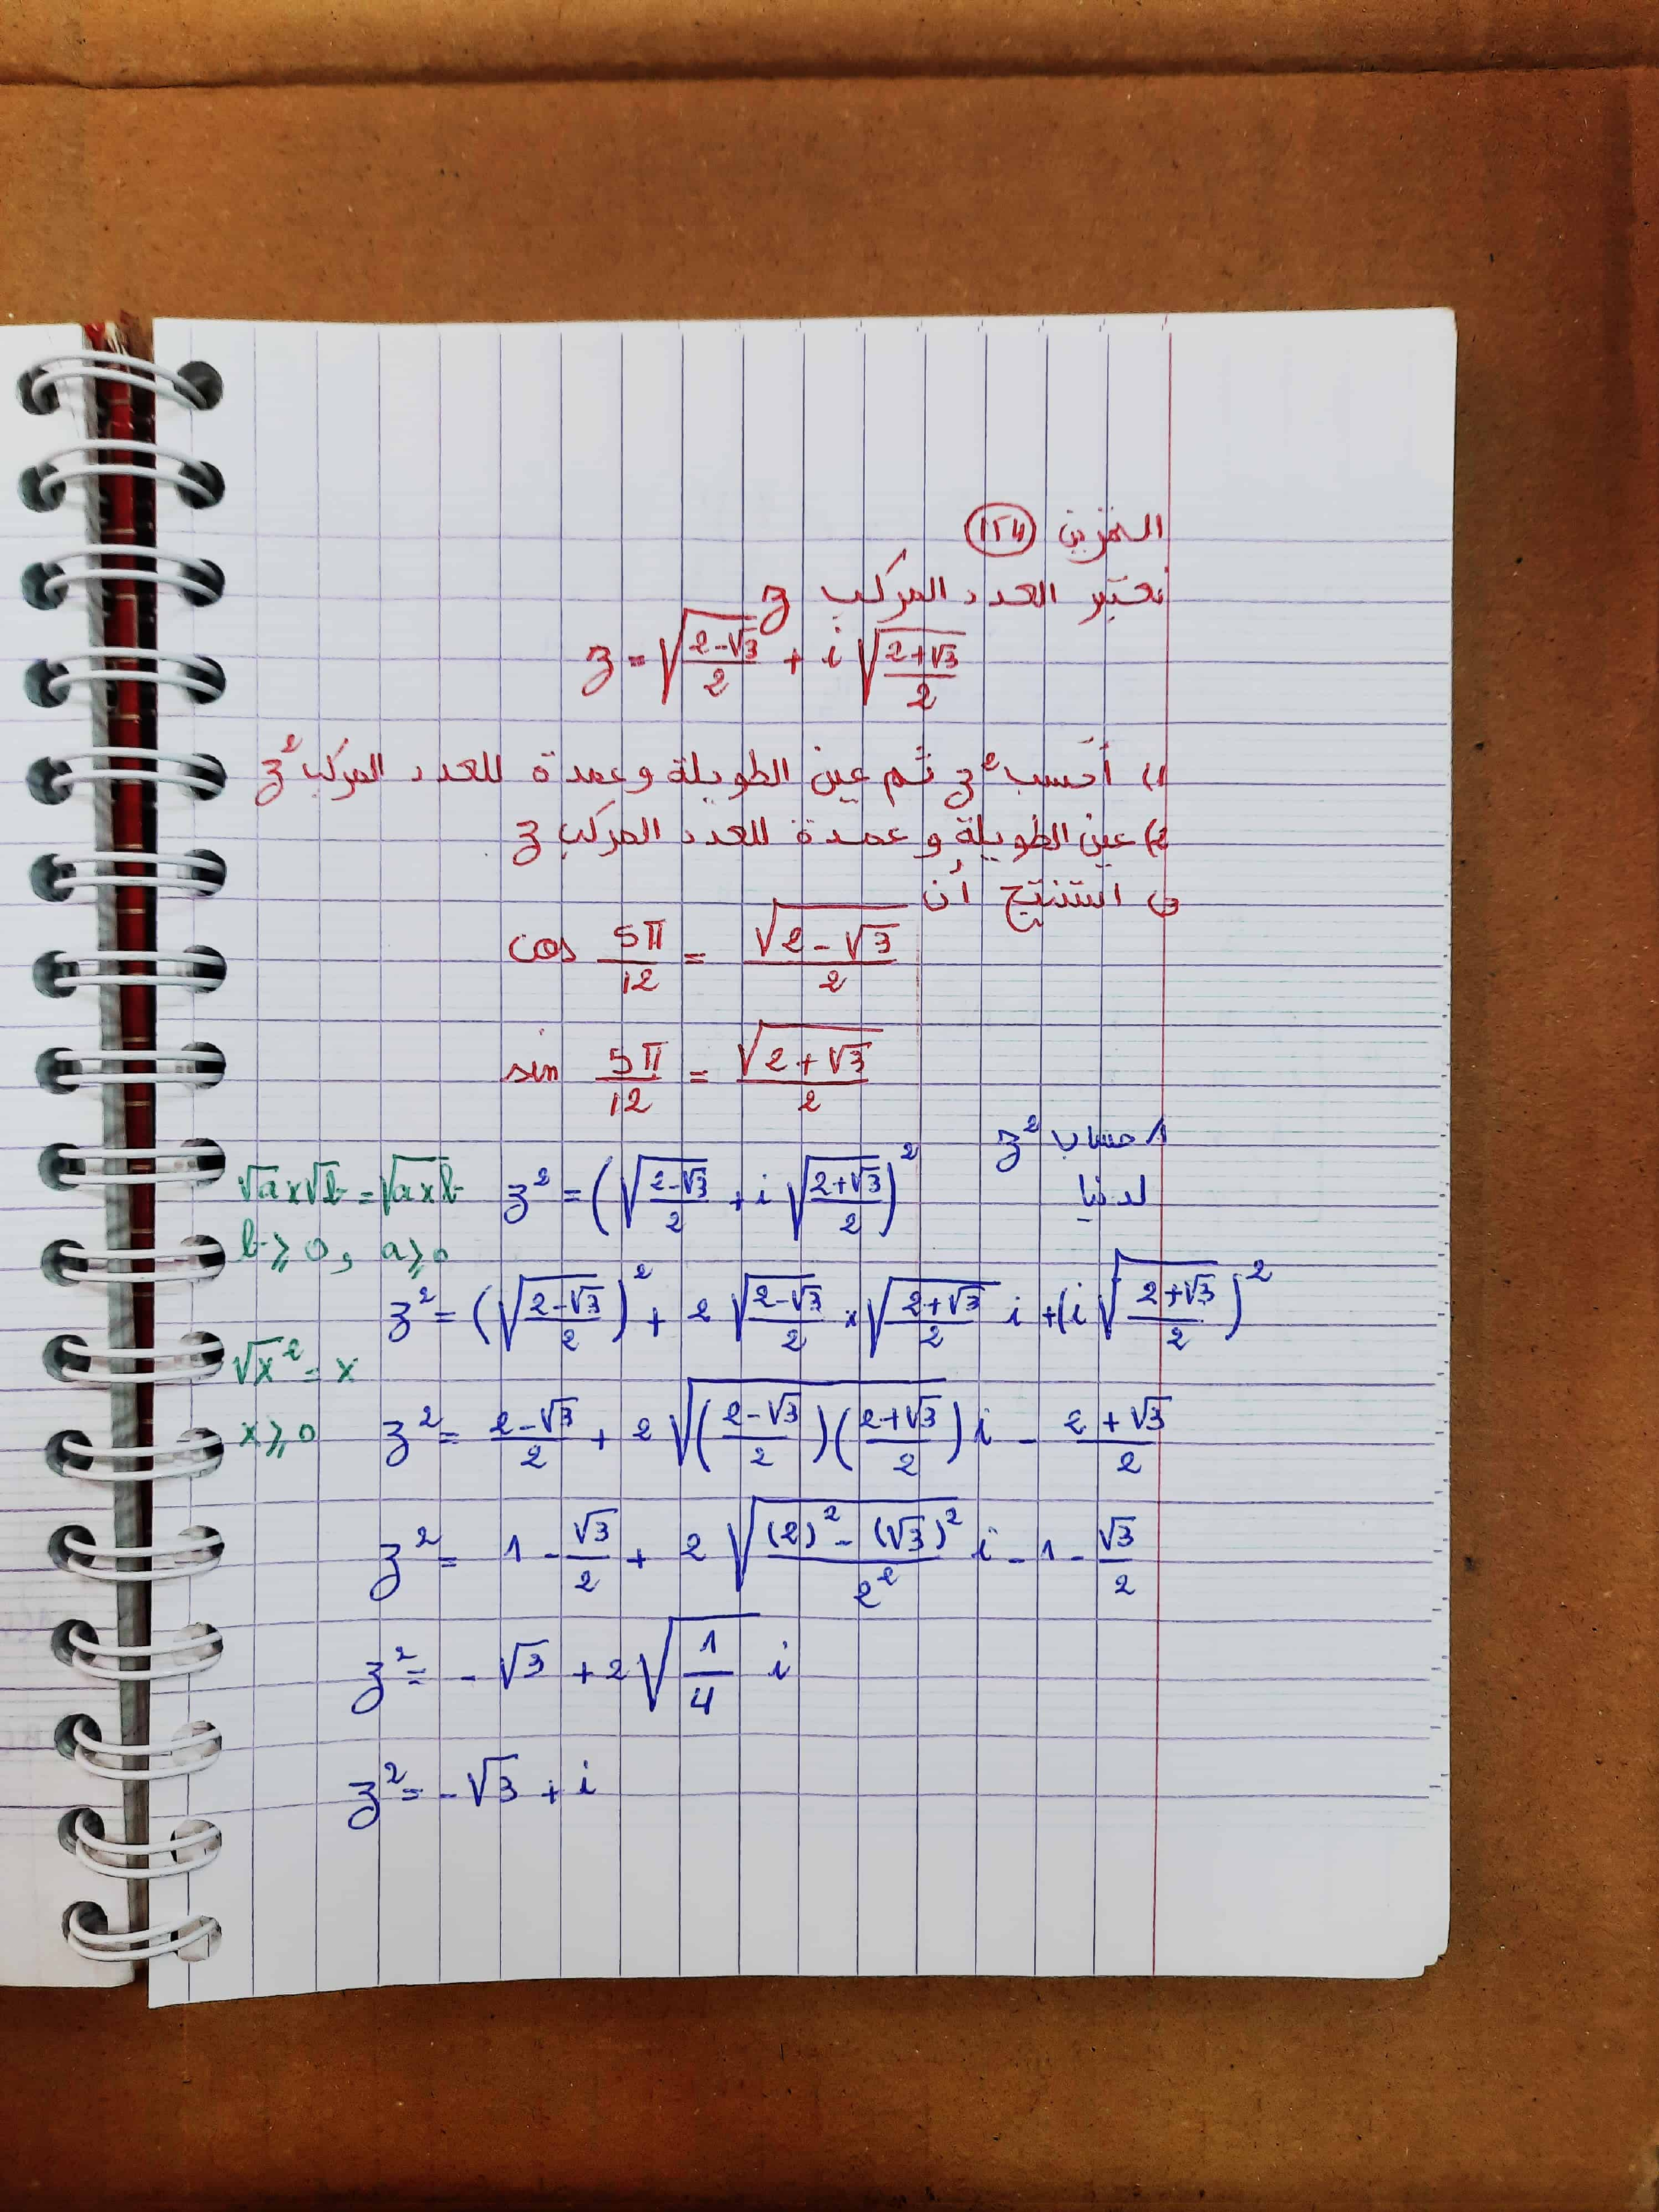 التمرين (154)
نعتبر العدد المركب z
z = √((2-√3)/2) + i √((2+√3)/2)
1) أحسب z² ثم عين الطويلة وعمدة للعدد المركب z²
2) عين الطويلة وعمدة للعدد المركب z
استنتج أن
cos 5π/12 = √(2-√3)/2
sin 5π/12 = √(2+√3)/2
1 حساب z²
لدينا z² = (√((2-√3)/2) + i √((2+√3)/2))²
√a×√b = √a×b
b⩾0, a⩾0
z² = (√((2-√3)/2))² + 2 √((2-√3)/2) × √((2+√3)/2) i + (i √((2+√3)/2))²
√x² = x
x⩾0
z² = (2-√3)/2 + 2 √(((2-√3)/2)((2+√3)/2)) i - (2+√3)/2
z² = 1 - √3/2 + 2 √(((2)² - (√3)²)/2²) i - 1 - √3/2
z² = -√3 + 2 √(1/4) i
z² = -√3 + i